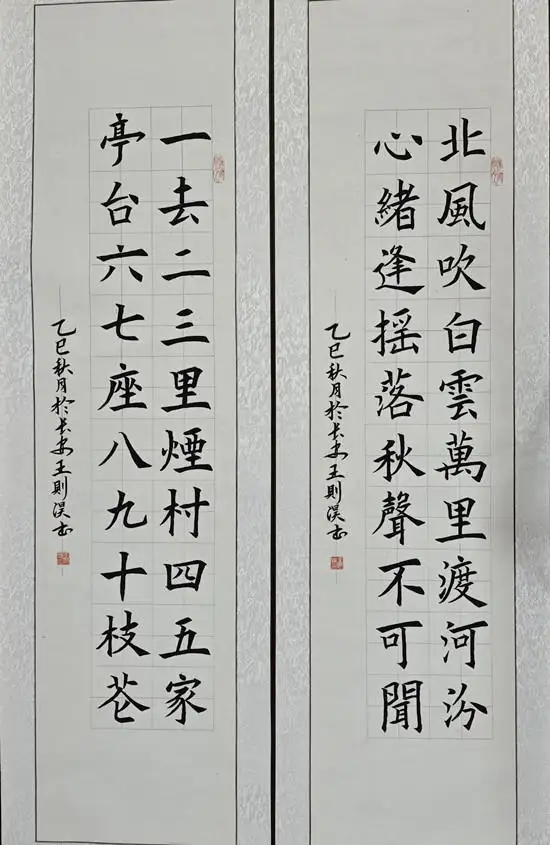 北風吹白雲萬里渡河汾
心緒逢摇落秋聲不可聞
乙巳秋月於長安王則淏書
一去二三里煙村四五家
亭台六七座八九十枝花
乙巳秋月於長安王則淏書